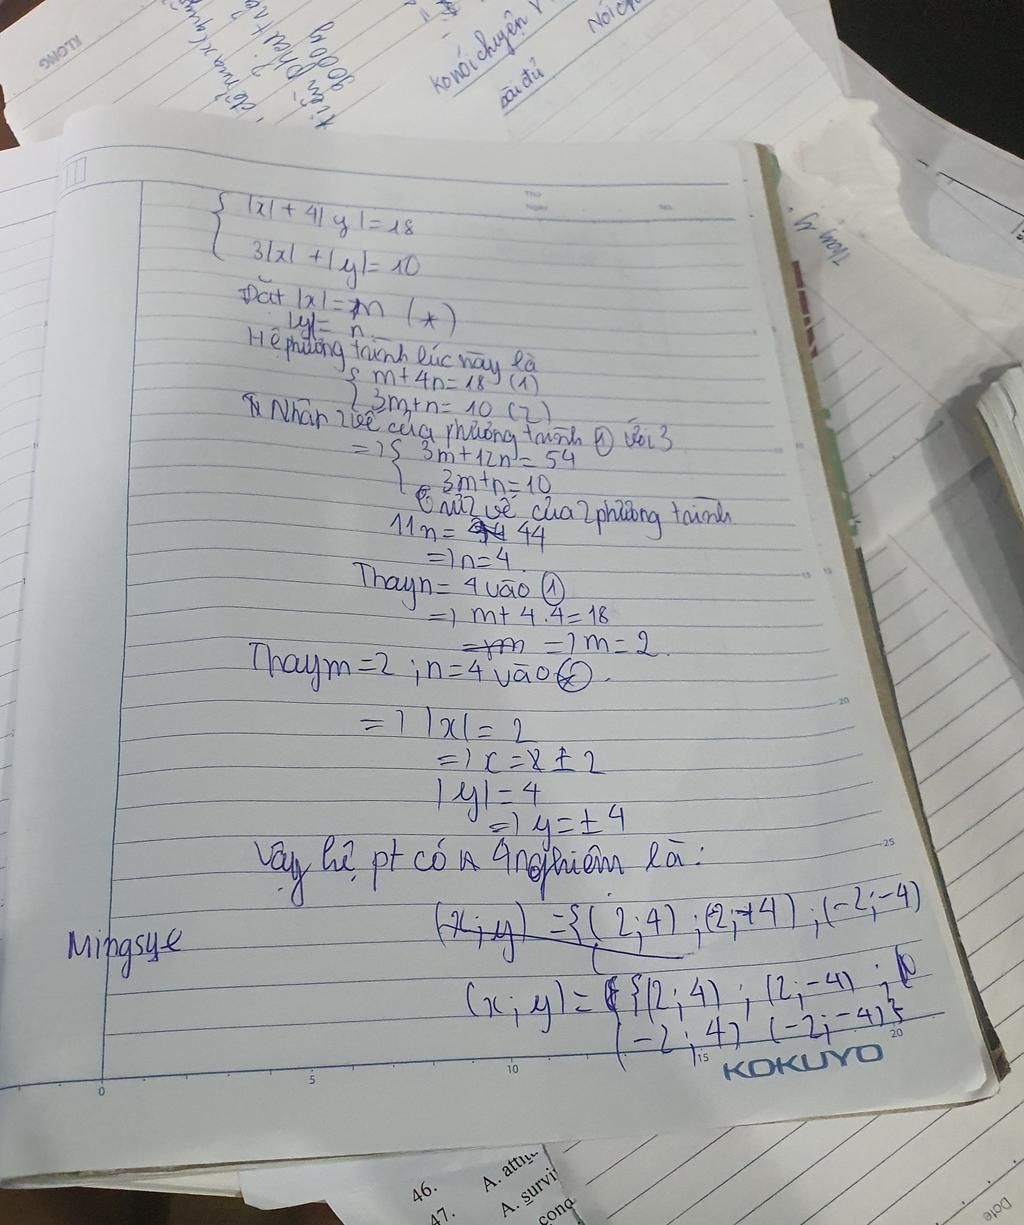 KLONG
Ko nói chuyện
Nói ch
{ |x| + 4|y| = 18
3|x| + |y| = 10
Đặt |x| = m (*)
|y| = n
Hệ phương trình lúc này là
{ m + 4n = 18 (1)
3m + n = 10 (2)
Nhân 2 vế của phương trình ① với 3
=> { 3m + 12n = 54
3m + n = 10
2 vế của 2 phương trình
11n = 44
=> n = 4
Thay n = 4 vào ①
=> m + 4.4 = 18
=> m => m = 2.
Thay m = 2 ; n = 4 vào (*).
=> |x| = 2
=> x = ± 2
|y| = 4
=> y = ± 4
Vậy hệ pt có 4 nghiệm là:
(x; y) = {(2; 4) ; (2; -4) ; (-2; -4)
Mingsye
(x; y) = {(2; 4) ; (2; -4) ;
(-2; 4) (-2; -4)}
0 5 10 15 20
KOKUYO
20
25
46.
A. attit
47.
A. survi
cong
Date